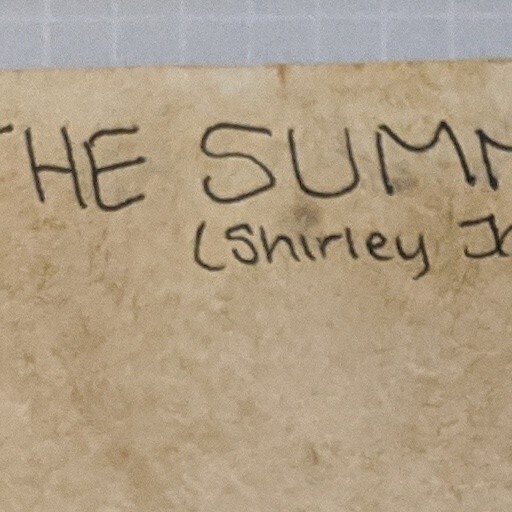 THE SUMM
(Shirley Ja